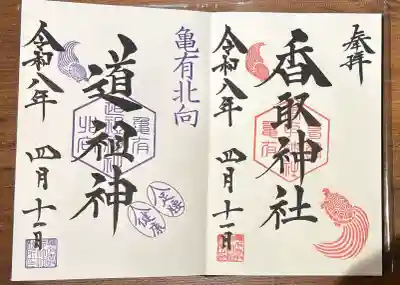 奉拝
香取神社
令和八年 四月十一日
亀有北向
道祖神
足腰
健康
令和八年 四月十一日